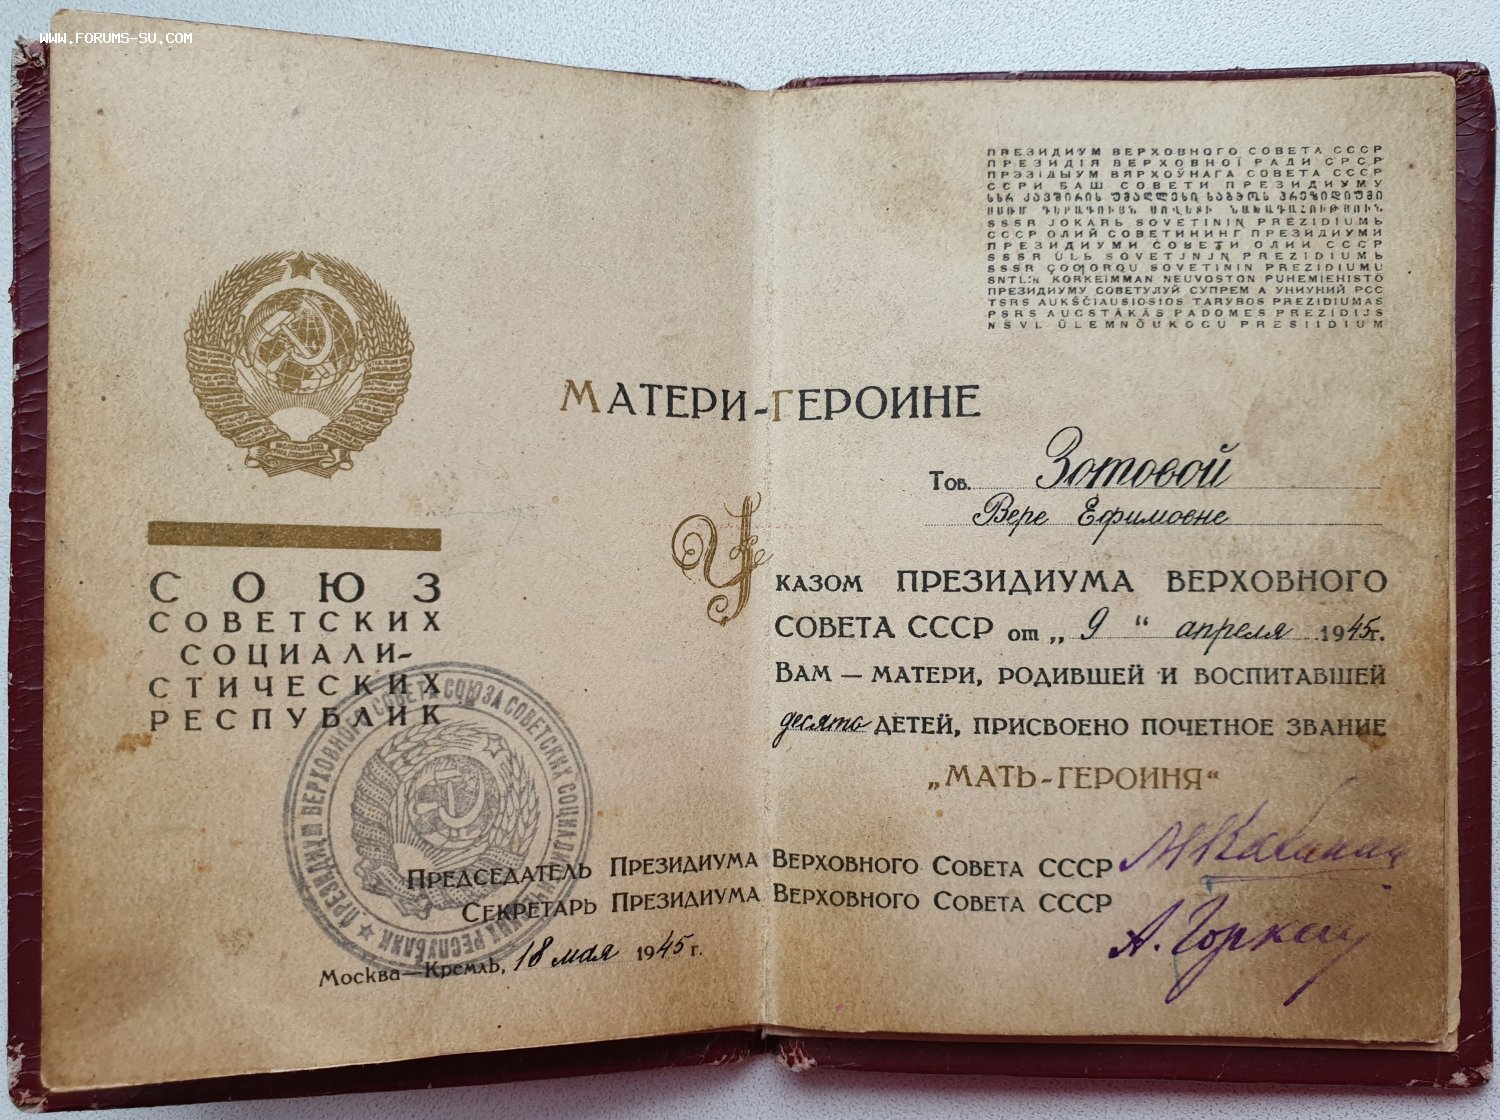 www.forums-su.com
СОЮЗ
СОВЕТСКИХ
СОЦИАЛИ-
СТИЧЕСКИХ
РЕСПУБЛИК
ПРЕЗИДИУМ ВЕРХОВНОГО СОВЕТА СССР
ПРЕЗИДІЯ ВЕРХОВНОЇ РАДИ СРСР
ПРЭЗІДЫУМ ВЯРХОЎНАГА СОВЕТА СССР
ССРИ БАШ СОВЕТИ ПРЕЗИДИУМУ
სსრ კავშირის უმაღლესი საბჭოს პრეზიდიუმი
SSSR JOKARЬ SOVETININ PREZIDIUMЬ
СССР ОЛИЙ СОВЕТИНИНГ ПРЕЗИДИУМИ
ПРЕЗИДИУМИ СОВЕТИ ОЛИИ СССР
SSSR PREZIDIUMЬ
SSSR SOVETININ PREZIDIUMU
SNTL:N KORKEIMMAN NEUVOSTON PUHEMIEHISTÖ
ПРЕЗИДИУМУ СОВЕТУЛУЙ СУПРЕМ А УНИУНИЙ РСС
TSRS AUKŠČIAUSIOSIOS TARYBOS PREZIDIUMAS
PSRS AUGSTĀKĀS PADOMES PREZIDIJS
NSVL ÜLEMNÕUKOGU PRESIIDIUM
МАТЕРИ-ГЕРОИНЕ
Тов. Зотовой
Вере Ефимовне
УКАЗОМ ПРЕЗИДИУМА ВЕРХОВНОГО
СОВЕТА СССР от „9“ апреля 1945г.
ВАМ — МАТЕРИ, РОДИВШЕЙ И ВОСПИТАВШЕЙ
десять ДЕТЕЙ, ПРИСВОЕНО ПОЧЕТНОЕ ЗВАНИЕ
„МАТЬ-ГЕРОИНЯ“
ПРЕДСЕДАТЕЛЬ ПРЕЗИДИУМА ВЕРХОВНОГО СОВЕТА СССР М Калинин
СЕКРЕТАРЬ ПРЕЗИДИУМА ВЕРХОВНОГО СОВЕТА СССР А. Горкин
Москва—Кремль, 18 мая 1945 г.
ПРЕЗИДИУМ ВЕРХОВНОГО СОВЕТА СОЮЗА СОВЕТСКИХ СОЦИАЛИСТИЧЕСКИХ РЕСПУБЛИК